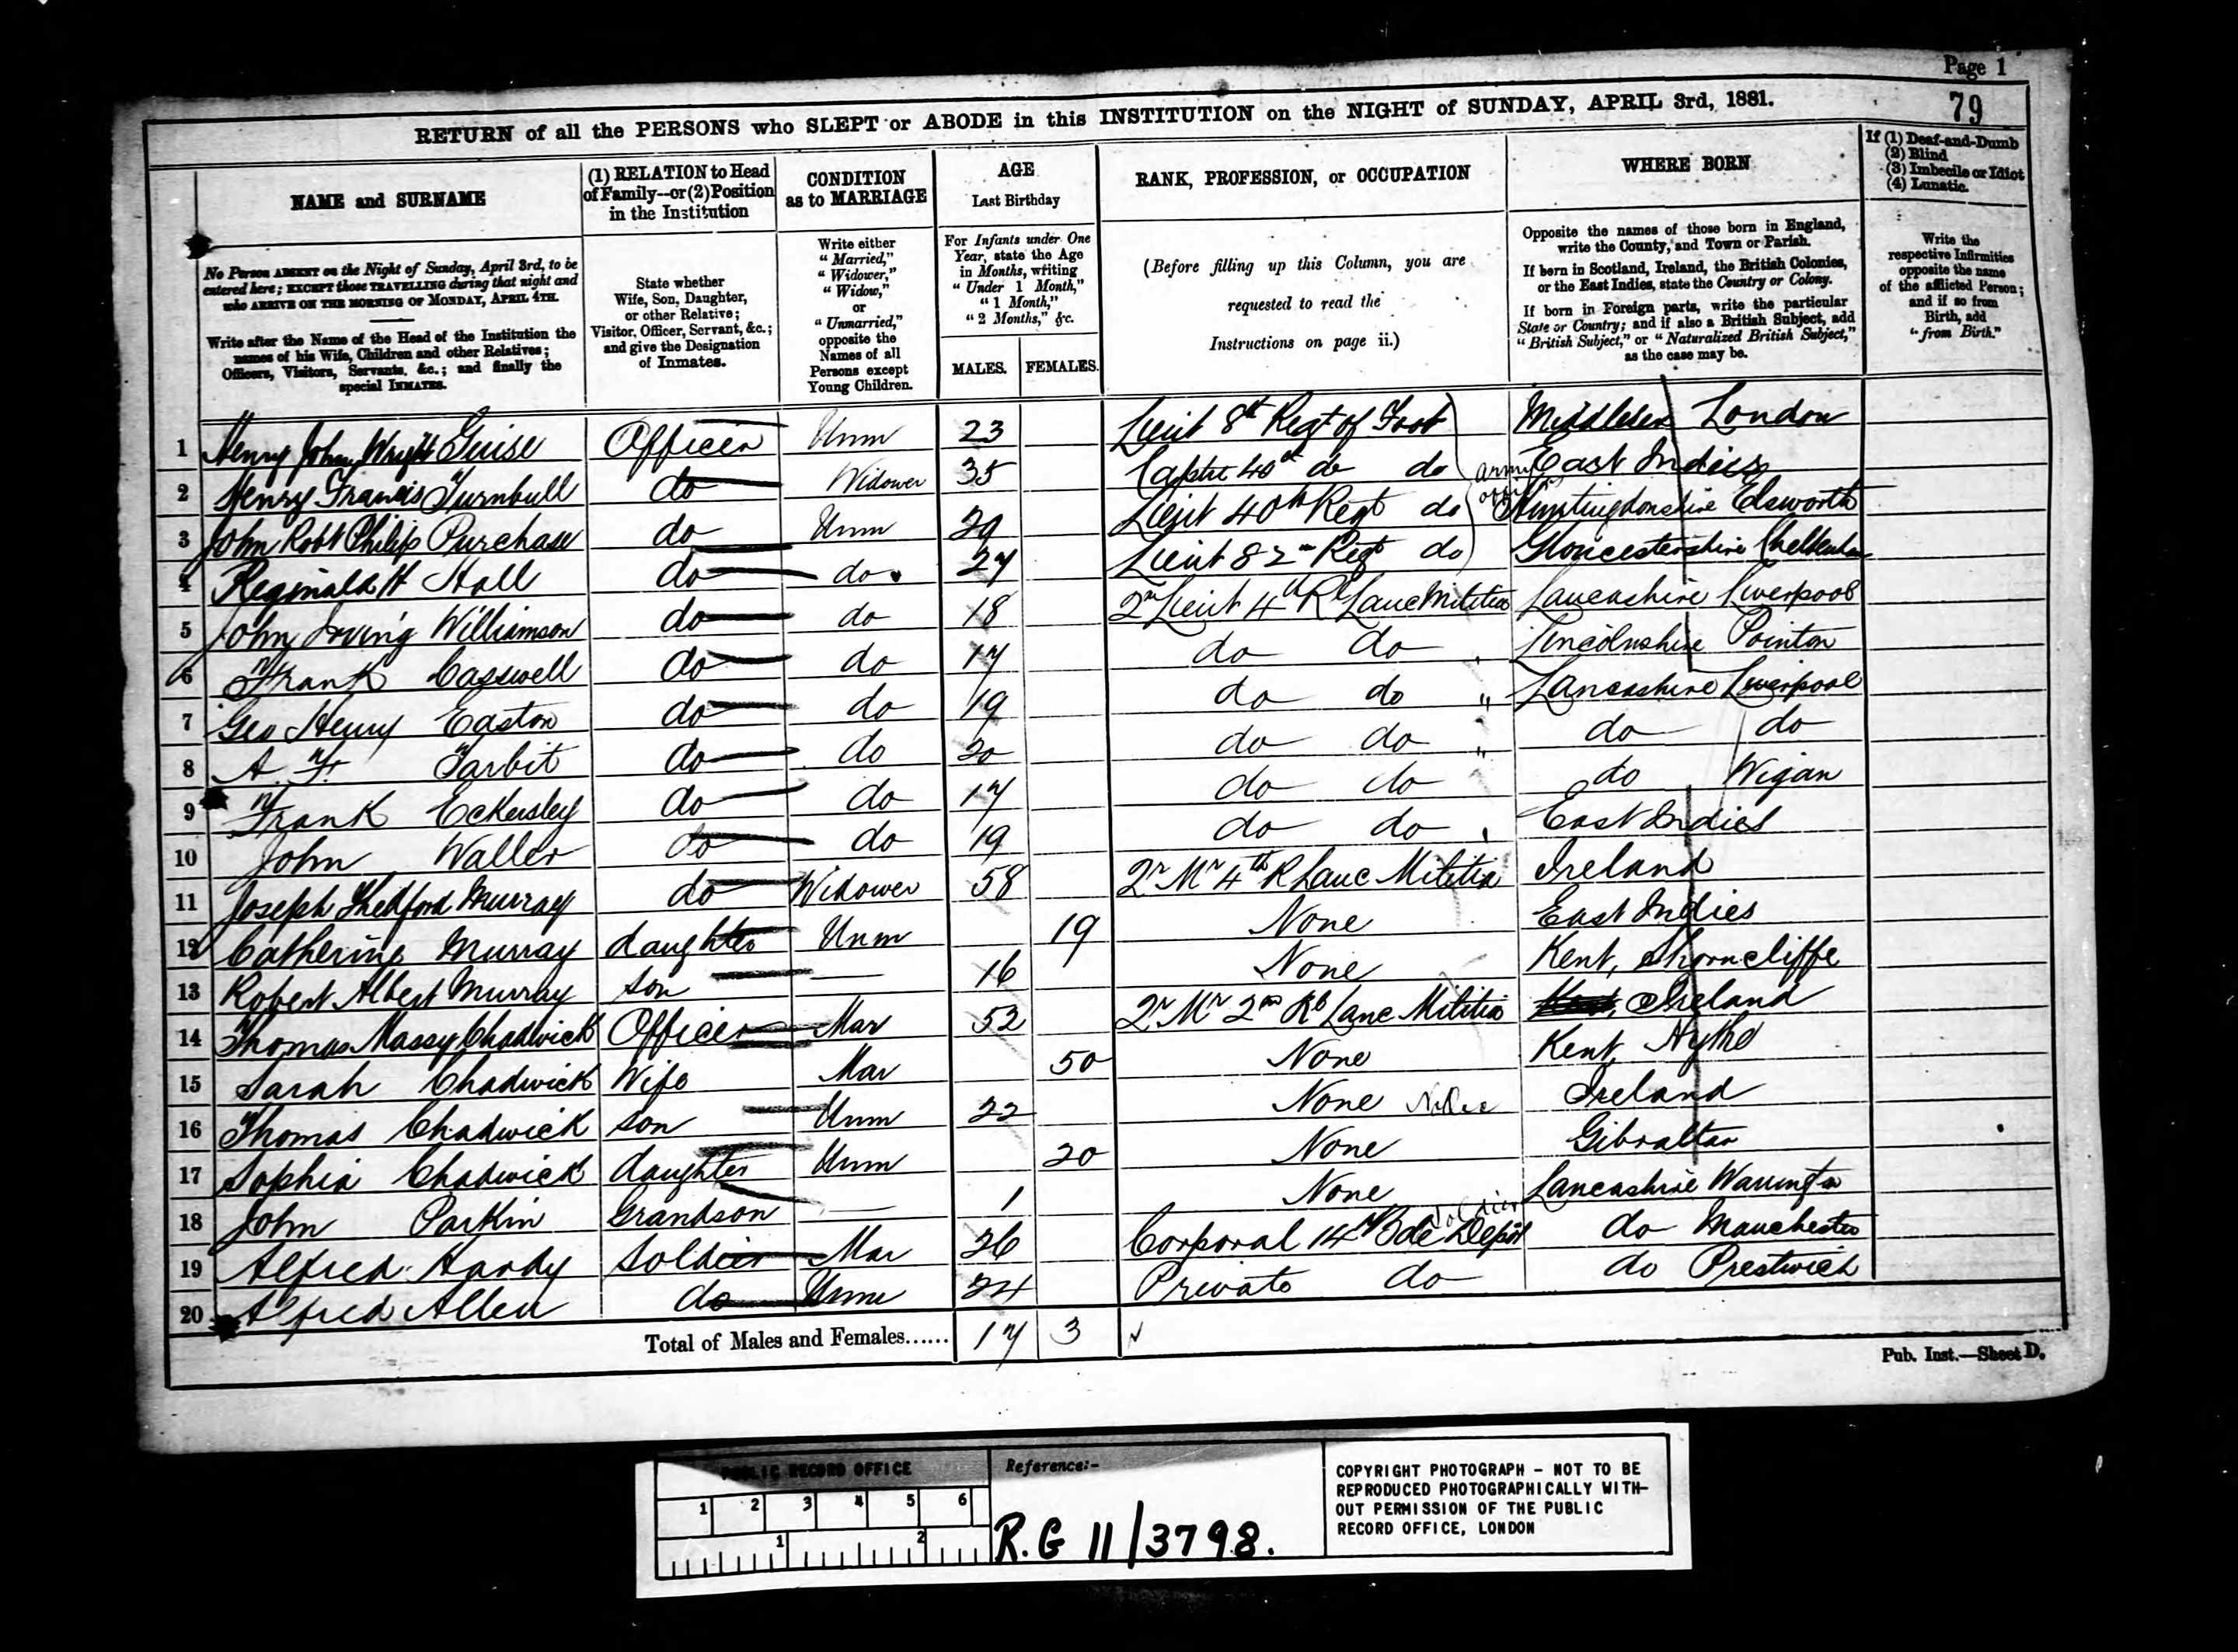 Page 1
79
RETURN of all the PERSONS who SLEPT or ABODE in this INSTITUTION on the NIGHT of SUNDAY, APRIL 3rd, 1881.
NAME and SURNAME
No Person ABSENT on the Night of Sunday, April 3rd, to be
entered here; EXCEPT those TRAVELLING during that night and
who ARRIVE ON THE MORNING OF MONDAY, APRIL 4TH.
Write after the Name of the Head of the Institution the
names of his Wife, Children and other Relatives;
Officers, Visitors, Servants, &c.; and finally the
special INMATES.
(1) RELATION to Head
of Family—or (2) Position
in the Institution
State whether
Wife, Son, Daughter,
or other Relative;
Visitor, Officer, Servant, &c.;
and give the Designation
of Inmates.
CONDITION
as to MARRIAGE
Write either
"Married,"
"Widower,"
"Widow,"
or
"Unmarried,"
opposite the
Names of all
Persons except
Young Children.
AGE
Last Birthday
For Infants under One
Year, state the Age
in Months, writing
"Under 1 Month,"
"1 Month,"
"2 Months," &c.
MALES. FEMALES.
RANK, PROFESSION, or OCCUPATION
(Before filling up this Column, you are
requested to read the
Instructions on page ii.)
WHERE BORN
Opposite the names of those born in England,
write the County, and Town or Parish.
If born in Scotland, Ireland, the British Colonies,
or the East Indies, state the Country or Colony.
If born in Foreign parts, write the particular
State or Country; and if also a British Subject, add
"British Subject," or "Naturalized British Subject,"
as the case may be.
If (1) Deaf-and-Dumb
(2) Blind
(3) Imbecile or Idiot
(4) Lunatic.
Write the
respective Infirmities
opposite the name
of the afflicted Person;
and if so from
Birth, add
"from Birth."
1 Henry John Wright Guise Officer Unm 23 Lieut 8th Regt of Foot Middlesex London
2 Henry Francis Turnbull do Widower 35 Capt 40th do do Army East Indies
3 John Robt Philip Purchase do Unm 29 Lieut 40th Regt do Huntingdonshire Elsworth
4 Reginald H Hall do do 27 Lieut 82nd Regt do Gloucestershire Cheltenham
5 John Irving Williamson do do 18 2n Lieut 4th Rl Lanc Militia Lancashire Liverpool
6 Frank Casswell do do 17 do do Lincolnshire Pointon
7 Geo Henry Easton do do 19 do do " Lancashire Liverpool
8 A. F. Tarbit do do 20 do do " do do
9 Frank Eckersley do do 17 do do do Wigan
10 John Waller do do 19 do do East Indies
11 Joseph Thedford Murray do Widower 58 2r Mr 4th R Lanc Militia Ireland
12 Catherine Murray daughter Unm 19 None East Indies
13 Robert Albert Murray son — 16 None Kent, Shorncliffe
14 Thomas Massy Chadwick Officer Mar 52 2r Mr 2nd Rl Lanc Militia Ireland
15 Sarah Chadwick Wife Mar 50 None Kent, Hythe
16 Thomas Chadwick son Unm 22 None Ireland
17 Sophia Chadwick daughter Unm 20 None Gibraltar
18 John Parkin Grandson — 1 None Lancashire Warrington
19 Alfred Hardy Soldier Mar 26 Corporal 14th Bde Depôt Soldier do Manchester
20 Alfred Allen do Unm 24 Private do do Prestwich
Total of Males and Females...... 17 3
Pub. Inst.—Sheet D.
PUBLIC RECORD OFFICE
1 2 3 4 5 6
1 2
Reference:-
R.G 11/3798.
COPYRIGHT PHOTOGRAPH - NOT TO BE
REPRODUCED PHOTOGRAPHICALLY WITH-
OUT PERMISSION OF THE PUBLIC
RECORD OFFICE, LONDON